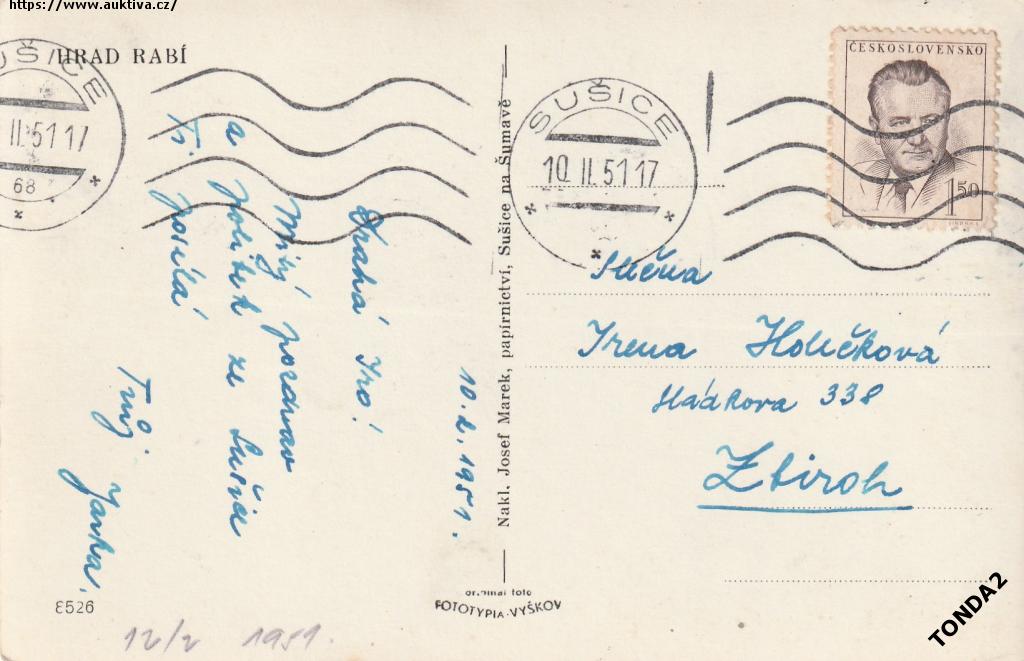 https://www.auktiva.cz/
HRAD RABÍ
SUŠICE
II.51 17
68
ČESKOSLOVENSKO
1 50
SUŠICE
10 II.51 17
10. 2. 1951.
Drahá Iro!
Milý pozdrav
a polibek ze Sušice
Ti posílá
Tvůj Jarka.
Nakl. Josef Marek, papírnictví, Sušice na Šumavě
Slečna
Irena Holečková
Hádkova 338
Zbiroh
8526
original foto
FOTOTYPIA-VYŠKOV
12/2 1951.
TONDA2